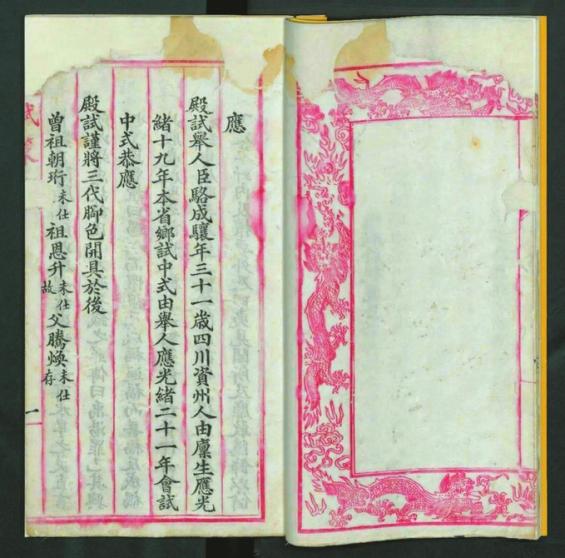 應
殿試舉人臣駱成驤年三十一歲四川資州人由廩生應光
緒十九年本省鄉試中式由舉人應光緒二十一年會試
中式恭應
殿試謹將三代腳色開具於後
曾祖朝珩未仕 祖恩升未仕故 父騰煥未仕存
一